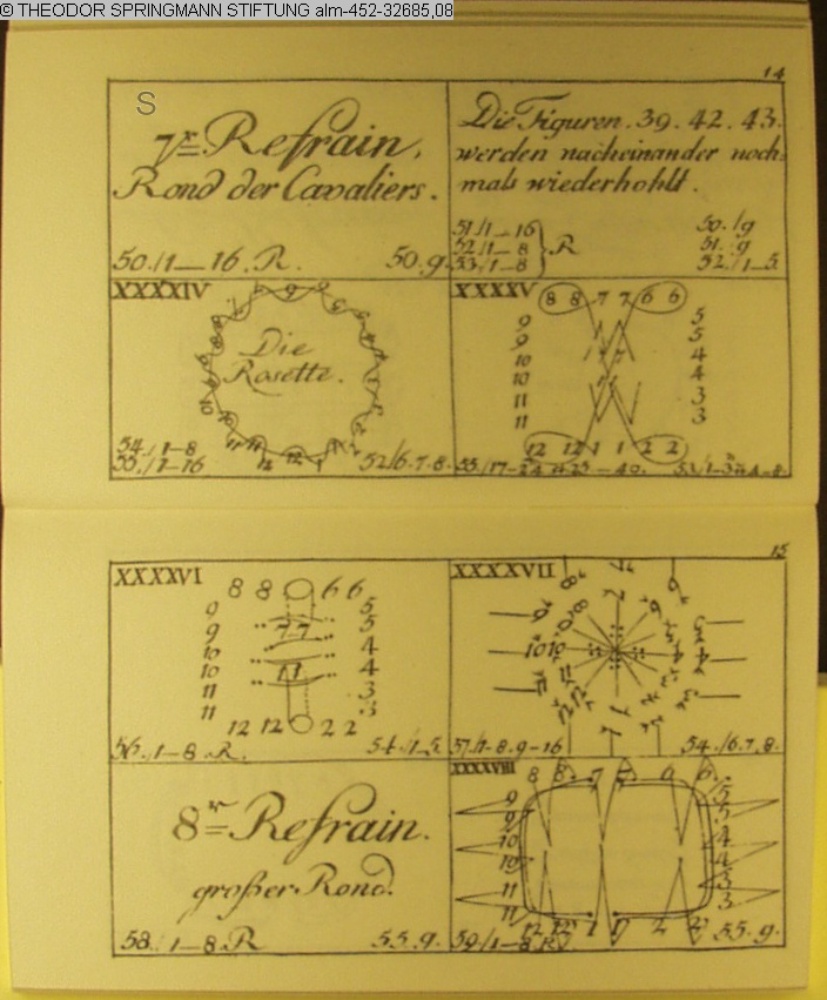 © THEODOR SPRINGMANN STIFTUNG alm-452-32685,08
14
S
7r Refrain,
Rond der Cavaliers.
50./1—16. R. 50.9.
Die Figuren. 39. 42. 43.
werden nacheinander noch-
mals wiederhohlt.
51/1—16 50./9
52/1—8 } R 51. 9
53/1—8 52/1—5.
XXXXIV
Die
Rosette.
54./1-8
55./1-16 52/6.7.8.
XXXXV
8 8 7 7 6 6
9 5
9 5
10 4
10 4
11 3
11 3
12 12 1 1 2 2
15
XXXXVI
8 8 6 6
9 5
9 7 7 5
10 4
10 1 1 4
11 3
11 3
12 12 2 2
56./1-8 R. 54./1-5.
XXXXVII
57/1-8.9-16 54./6.7.8.
8r Refrain.
großer Rond.
58./1-8.R 55.9.
XXXXVIII
8 8 7 7 6 6
9 5
9 5
10 4
10 4
11 3
11 3
12 12 1 1 2 2
59/1-8 R 55.9.